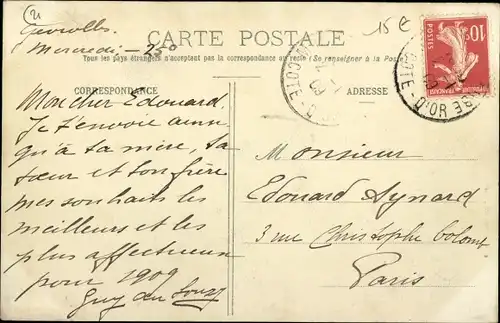 21
Gevrolles
Mercredi - 25°
15 €
CARTE POSTALE
Tous les pays étrangers n'acceptent pas la correspondance au recto (Se renseigner à la Poste)
CORRESPONDANCE
ADRESSE
Mon cher Edouard,
Je t'envoie ainsi
qu'à ta mère, ta
sœur et ton frère
mes souhaits les
meilleurs et les
plus affectueux
pour 1909
Guy du
Monsieur
Edouard Aynard
3 rue Christophe Colomb
Paris
10c
POSTES
COTE-D'OR
COTE-D'OR